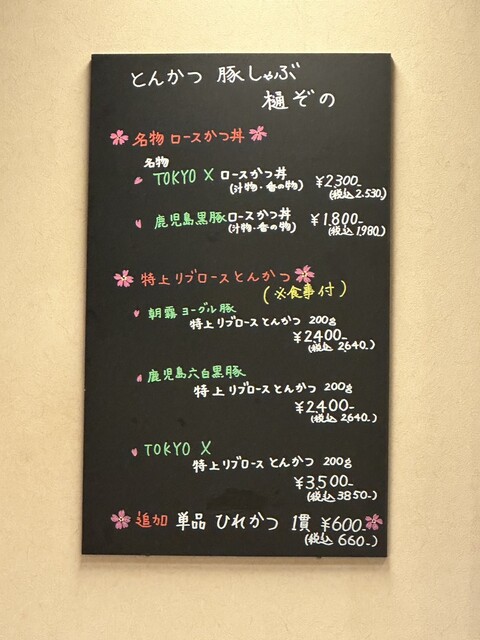 とんかつ 豚しゃぶ
樋ぞの
名物 ロースかつ丼
名物
TOKYO X ロースかつ丼 ¥2,300-
(汁物・香の物) (税込 2,530-)
鹿児島黒豚 ロースかつ丼 ¥1,800-
(汁物・香の物) (税込 1,980-)
特上リブロースとんかつ
(※食事付)
朝霧ヨーグル豚
特上リブロースとんかつ 200g
¥2,400-
(税込 2,640-)
鹿児島六白黒豚
特上リブロースとんかつ 200g
¥2,400-
(税込 2,640-)
TOKYO X
特上リブロースとんかつ 200g
¥3,500-
(税込 3850-)
追加 単品 ひれかつ 1貫 ¥600-
(税込 660-)